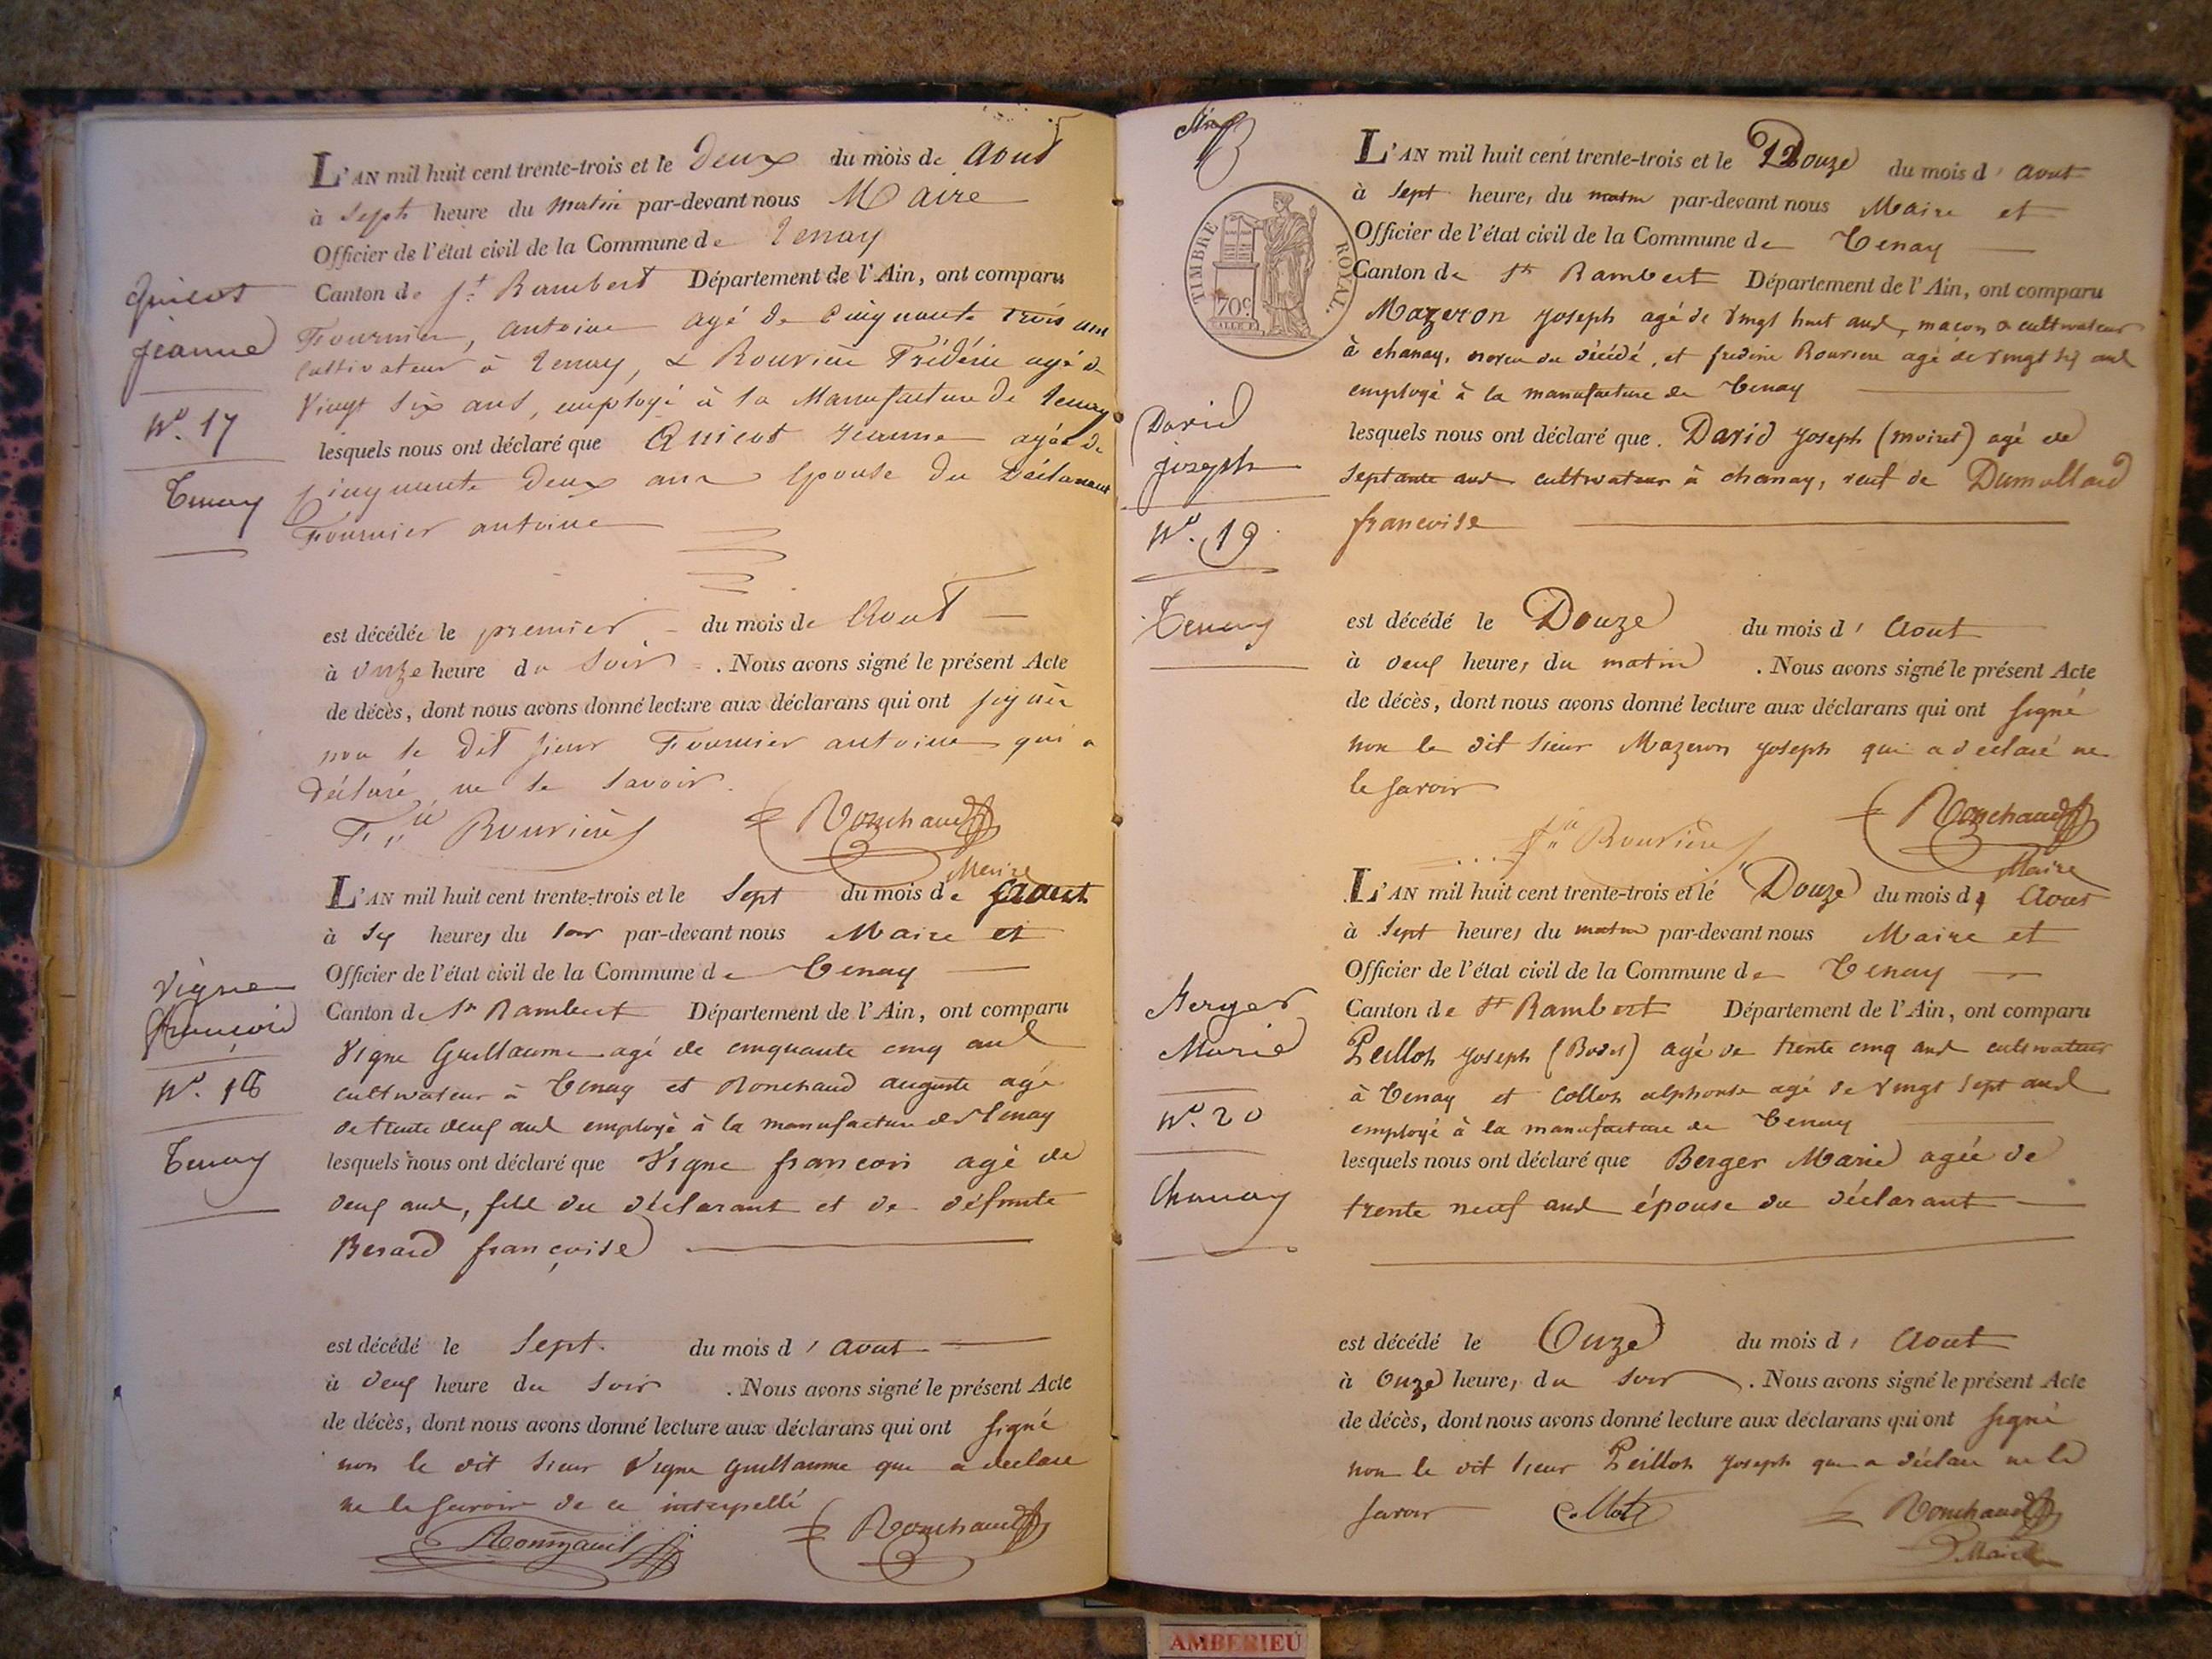 L'AN mil huit cent trente-trois et le Deux du mois de Aout
à Sept heure du Matin par-devant nous Maire
Officier de l'état civil de la Commune de Tenay
Canton de St Rambert Département de l'Ain, ont comparu
Fournier, antoine agé de Cinquante trois ans
Cultivateur à Tenay, & Rouvière Frédéric agé de
Vingt Six ans, employé à la Manufacture de Tenay
lesquels nous ont déclaré que Quicot Jeanne agée de
Cinquante Deux ans Epouse du Déclarant
Fournier antoine
est décédée le premier du mois de Aout
à onze heure du Soir . Nous avons signé le présent Acte
de décès, dont nous avons donné lecture aux déclarans qui ont signés
non le Dit sieur Fournier antoine qui a
Déclaré ne le Savoir.
Rouvière Ronchaud
Maire
Quicot
Jeanne
No. 17
Tenay
L'AN mil huit cent trente-trois et le Sept du mois de aout
à Six heures du Soir par-devant nous Maire et
Officier de l'état civil de la Commune de Tenay
Canton de St Rambert Département de l'Ain, ont comparu
Vigne Guillaume agé de cinquante cinq ans
cultivateur à Tenay et Ronchaud auguste agé
de trente deux ans employé à la manufacture de Tenay
lesquels nous ont déclaré que Vigne françois agé de
deux ans, fils du déclarant et de défunte
Berard françoise
est décédé le Sept du mois d' aout
à deux heure du Soir . Nous avons signé le présent Acte
de décès, dont nous avons donné lecture aux déclarans qui ont signé
non le dit Sieur Vigne Guillaume qui a déclaré
ne le savoir de ce interpellé
Ronchaud
Vigne
François
No. 18
Tenay
TIMBRE ROYAL.
70c.
L'AN mil huit cent trente-trois et le Douze du mois d' aout
à Sept heures du matin par-devant nous Maire et
Officier de l'état civil de la Commune de Tenay
Canton de St Rambert Département de l'Ain, ont comparu
Mazeron Joseph agé de Vingt huit ans, maçon & cultivateur
à chanay, neveu du décédé, et Rouviere agé de Vingt Six ans
employé à la manufacture de Tenay
lesquels nous ont déclaré que David Joseph (moiret) agé de
Septante ans cultivateur à chanay, veuf de Dumollard
francoise
est décédé le Douze du mois d' Aout
à deux heures du matin . Nous avons signé le présent Acte
de décès, dont nous avons donné lecture aux déclarans qui ont signé
non le dit Sieur Mazeron Joseph qui a déclaré ne
le savoir
Rouvière Ronchaud
Maire
David
Joseph
No. 19
Tenay
L'AN mil huit cent trente-trois et le Douze du mois d' Aout
à Sept heures du matin par-devant nous Maire et
Officier de l'état civil de la Commune de Tenay
Canton de St Rambert Département de l'Ain, ont comparu
Peillot Joseph agé de trente cinq ans cultivateur
à Tenay et Collot alphonse agé de Vingt Sept ans
employé à la manufacture de Tenay
lesquels nous ont déclaré que Berger Marie agée de
trente neuf ans épouse du déclarant
est décédé le Onze du mois d' Aout
à Onze heures du Soir . Nous avons signé le présent Acte
de décès, dont nous avons donné lecture aux déclarans qui ont signé
non le dit Sieur Peillot Joseph qui a déclaré ne le
savoir Collot Ronchaud
Maire
Berger
Marie
No. 20
Chanay
AMBERIEU